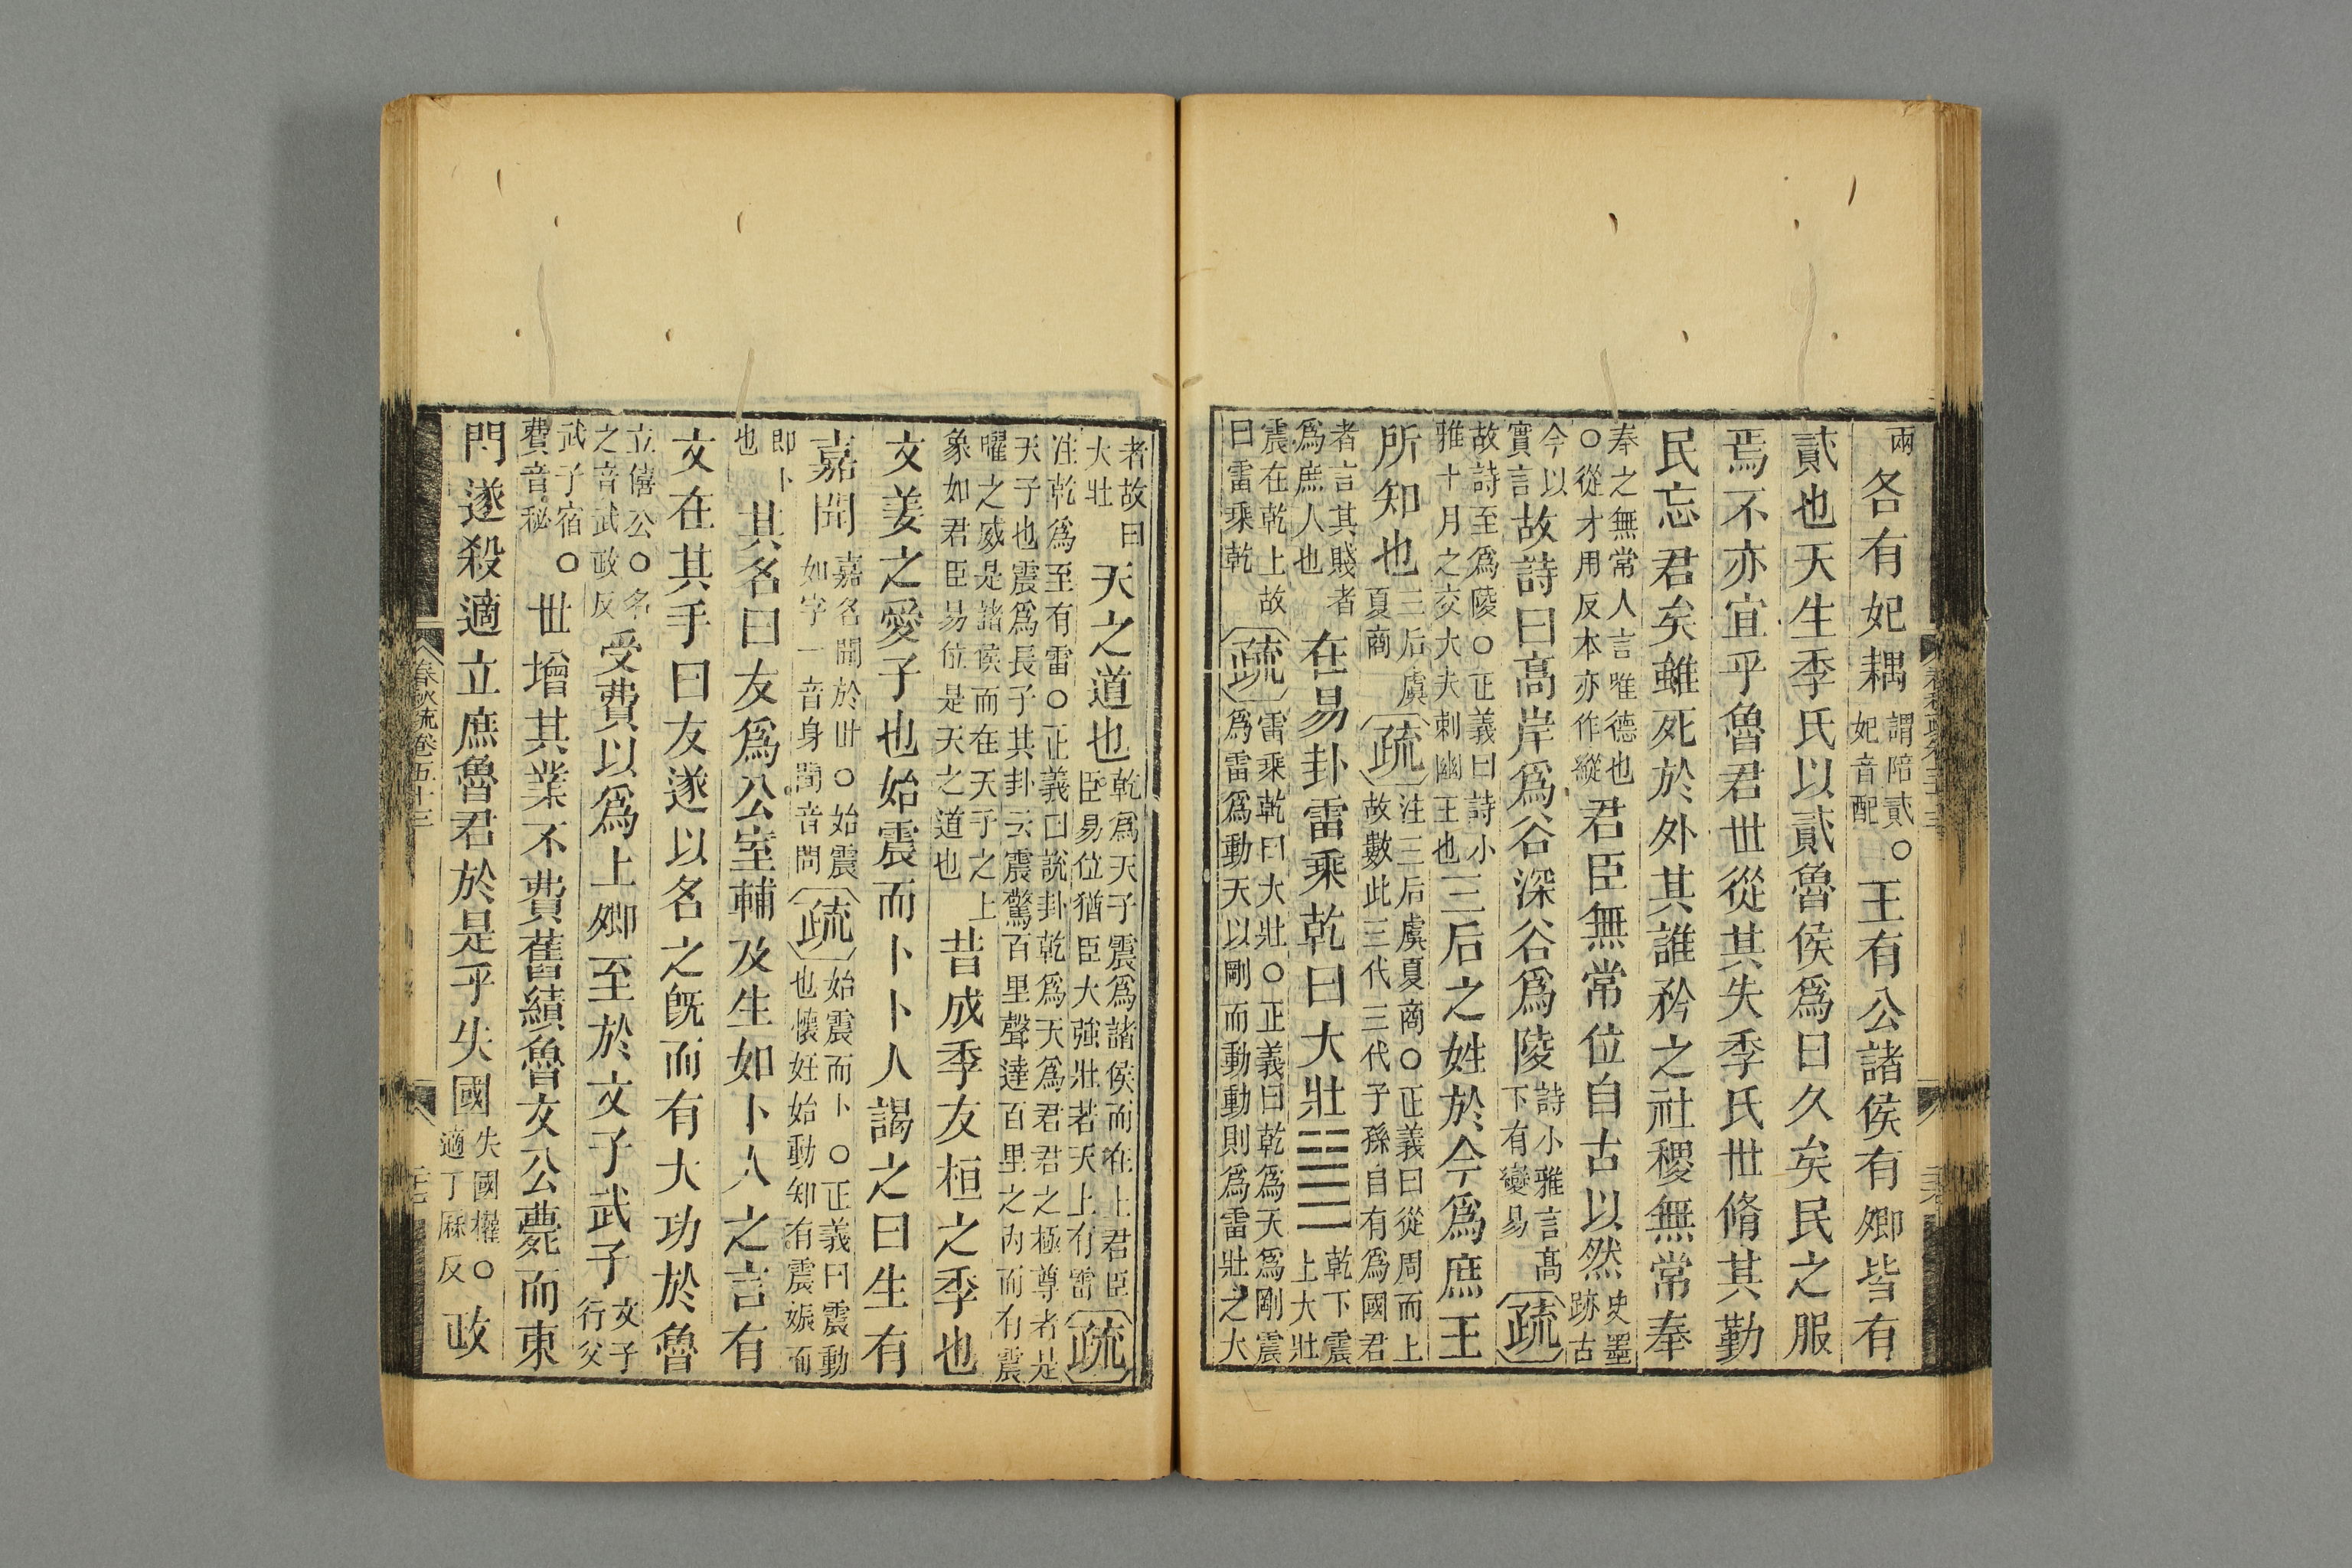 兩各有妃耦謂陪貳○妃音配王有公諸侯有卿皆有
貳也天生季氏以貳魯侯爲日久矣民之服
焉不亦宜乎魯君世從其失季氏世脩其勤
民忘君矣雖死於外其誰矜之社稷無常奉
奉之無常人言唯德也○從才用反本亦作縱君臣無常位自古以然史墨跡古
今以實言故詩曰高岸爲谷深谷爲陵詩小雅言高下有變易疏
故詩至爲陵○正義曰詩小雅十月之交大夫刺幽王也三后之姓於今爲庶王
所知也三后虞夏商疏注三后虞夏商○正義曰從周而上故數此三代三代子孫自有爲國君
者言其賤者爲庶人也在易卦雷乘乾曰大壯乾下震上大壯
震在乾上故曰雷乘乾疏雷乘乾曰大壯○正義曰乾爲天爲剛震爲雷爲動天以剛而動動則爲雷壯之大
者故曰大壯天之道也乾爲天子震爲諸侯而在上君臣易位猶臣大強壯若天上有雷疏
注乾爲至有雷○正義曰說卦乾爲天爲君君之極尊者是天子也震爲長子其卦云震驚百里聲達百里之內而有震
曜之威是諸侯而在天子之上象如君臣易位是天之道也昔成季友桓之季也
文姜之愛子也始震而卜卜人謁之曰生有
嘉聞嘉名聞於世○始震如字一音身聞音問疏始震而卜○正義曰震動也懷妊始動知有震娠而
即卜也其名曰友爲公室輔及生如卜人之言有
文在其手曰友遂以名之旣而有大功於魯
立僖公○名之音武政反受費以爲上卿至於文子武子文子行父
武子宿○費音秘世增其業不費舊績魯文公薨而東
門遂殺適立庶魯君於是乎失國失國權○適丁厤反政
春秋疏卷五十三